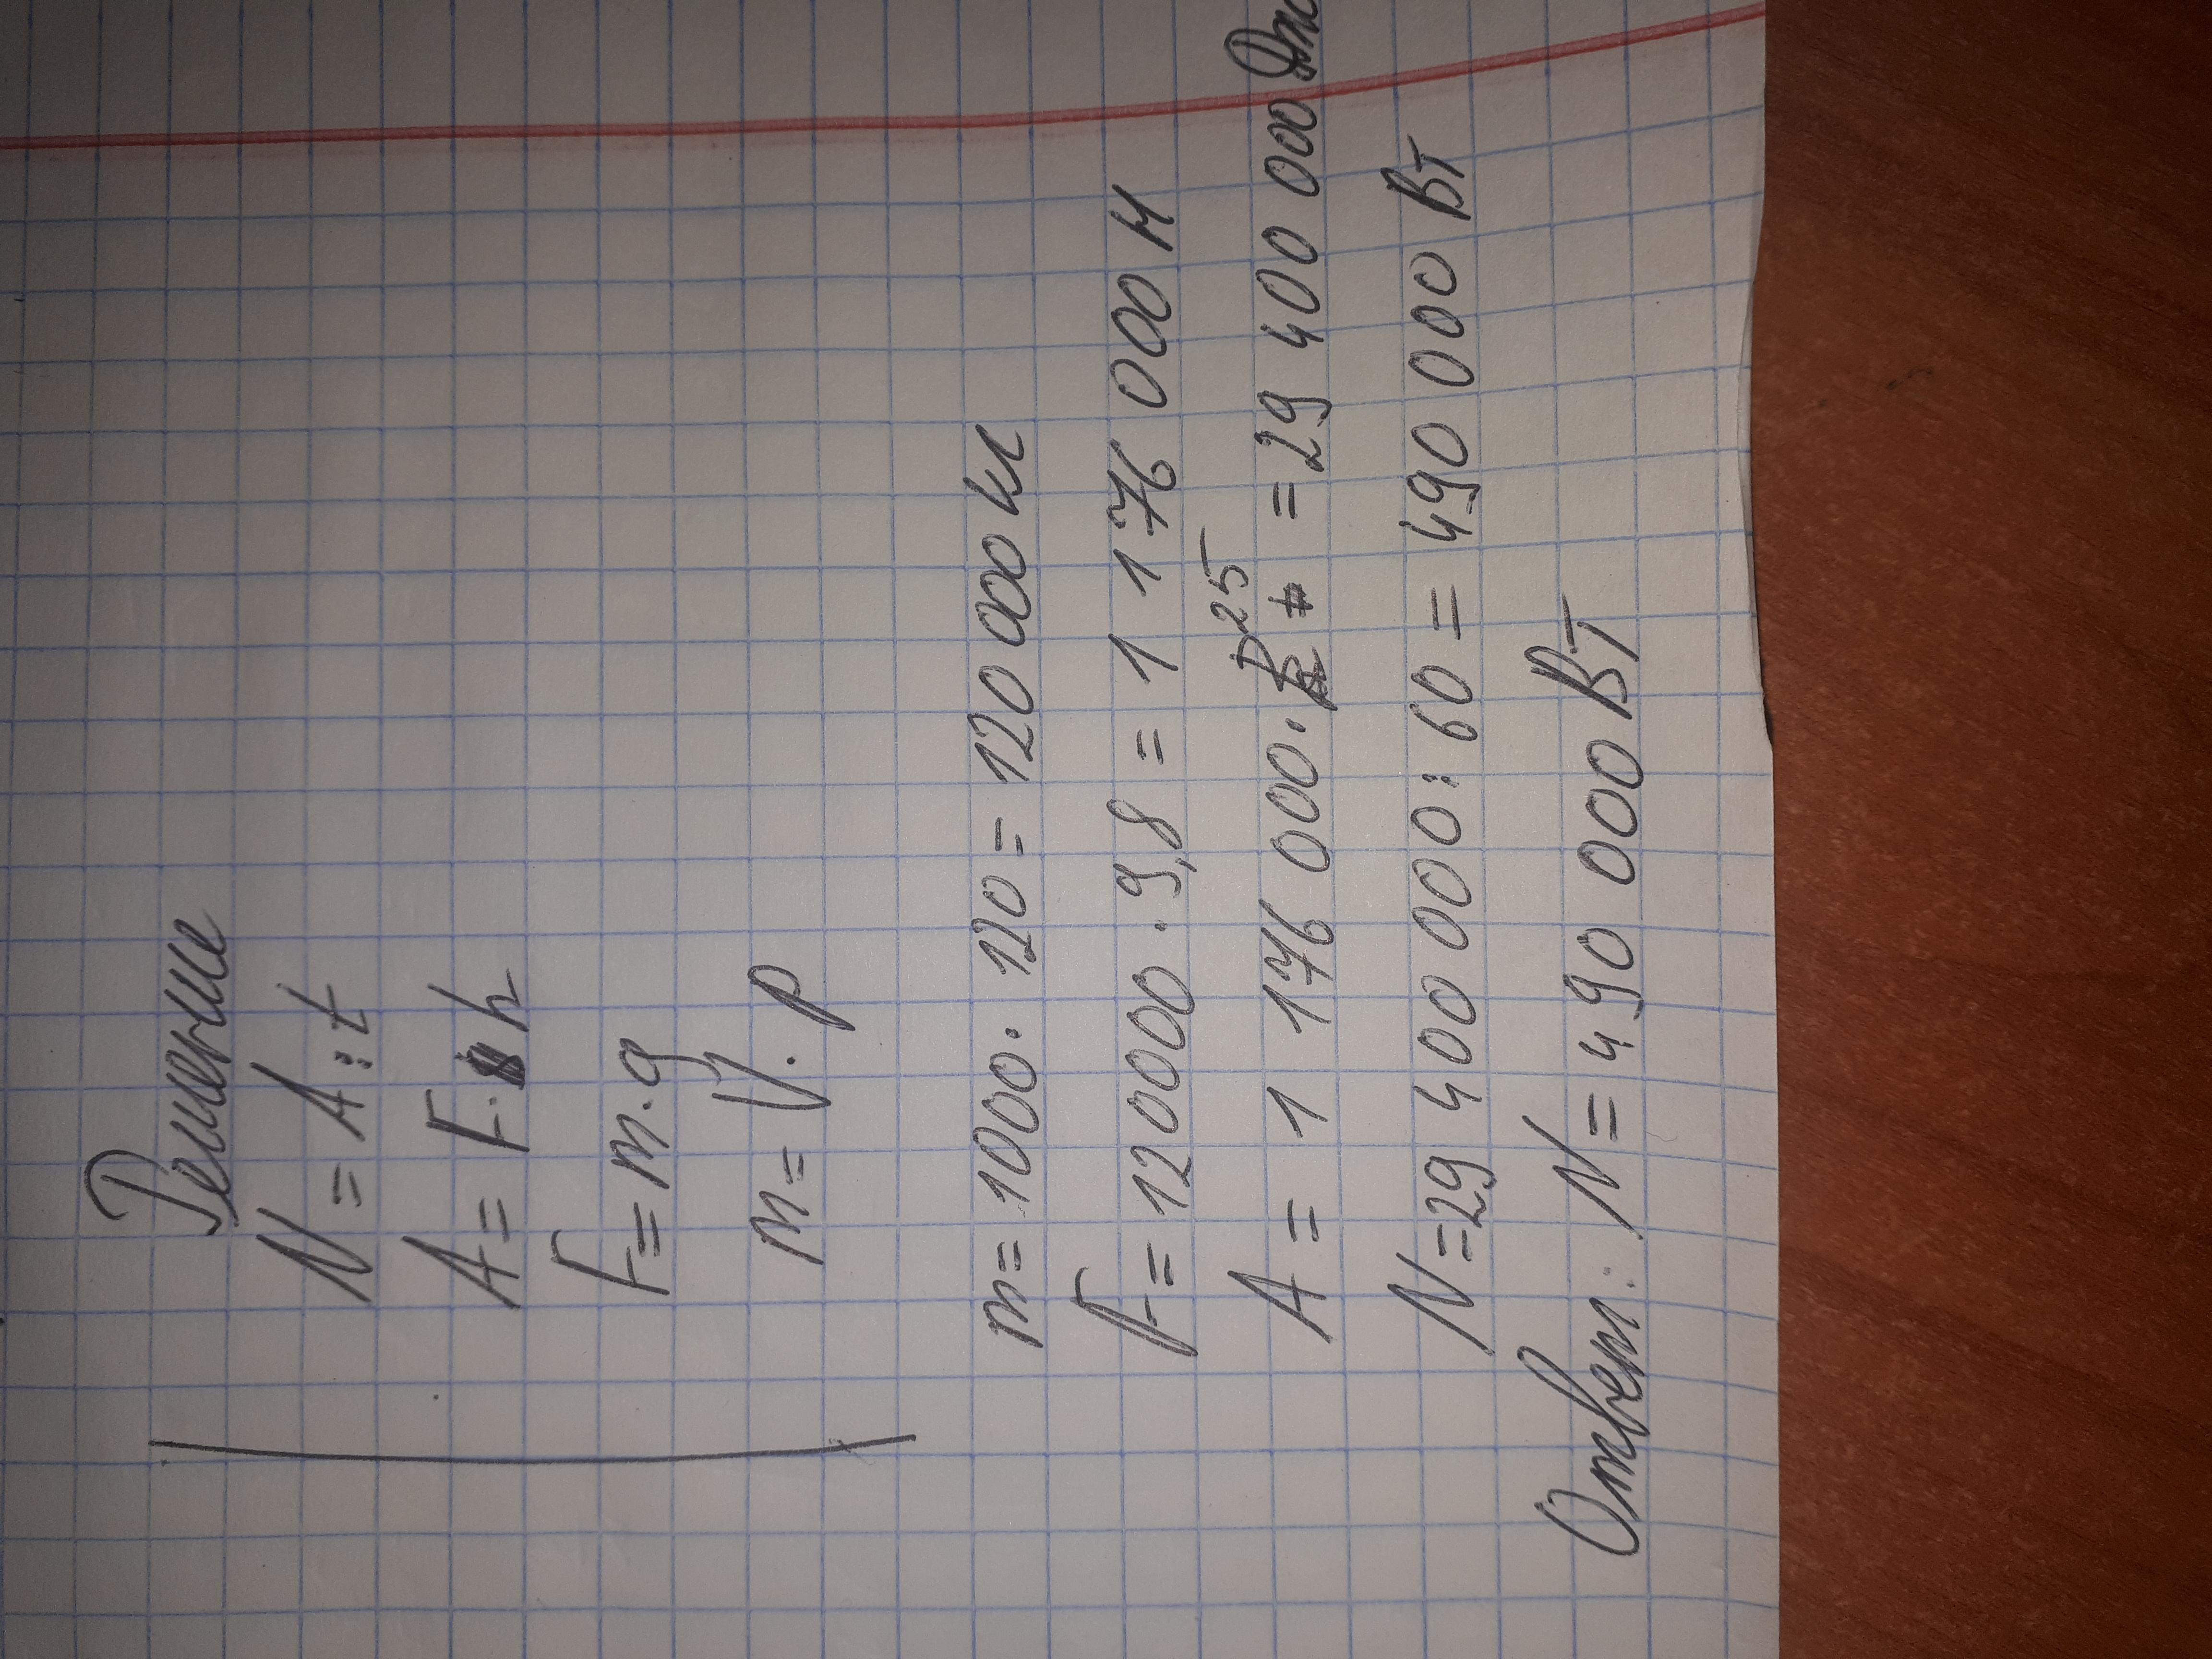 Решение
N = A : t
A = F · h
F = m · g
m = V · p
m = 1000 · 120 = 120 000 кг
F = 120000 · 9,8 = 1 176 000 Н
A = 1 176 000 · 25 = 29 400 000 Дж
N = 29 400 000 : 60 = 490 000 Вт
Ответ: N = 490 000 Вт